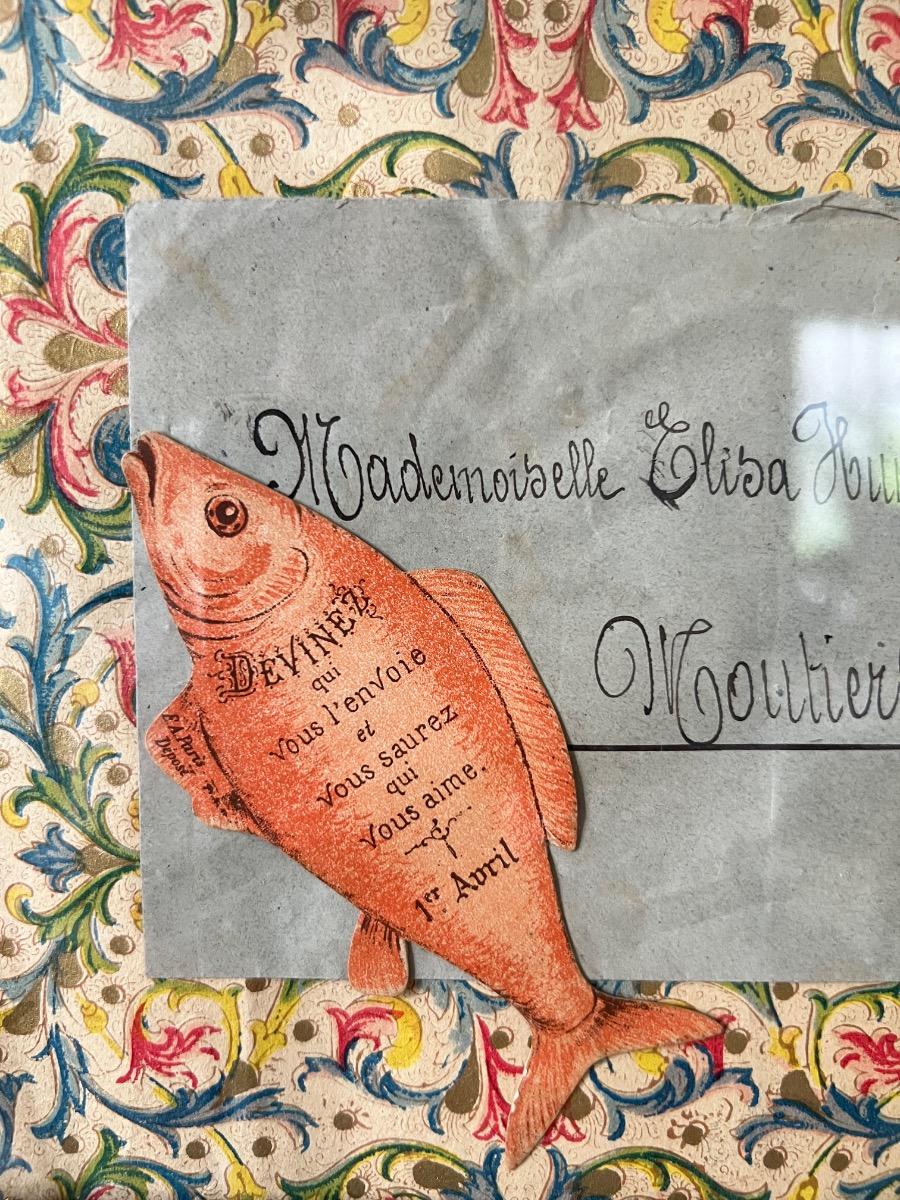 Mademoiselle Elisa
Moutiers
DEVINEZ
qui
vous l'envoie
et
vous saurez
qui
vous aime.
1er Avril
Paris
Déposé